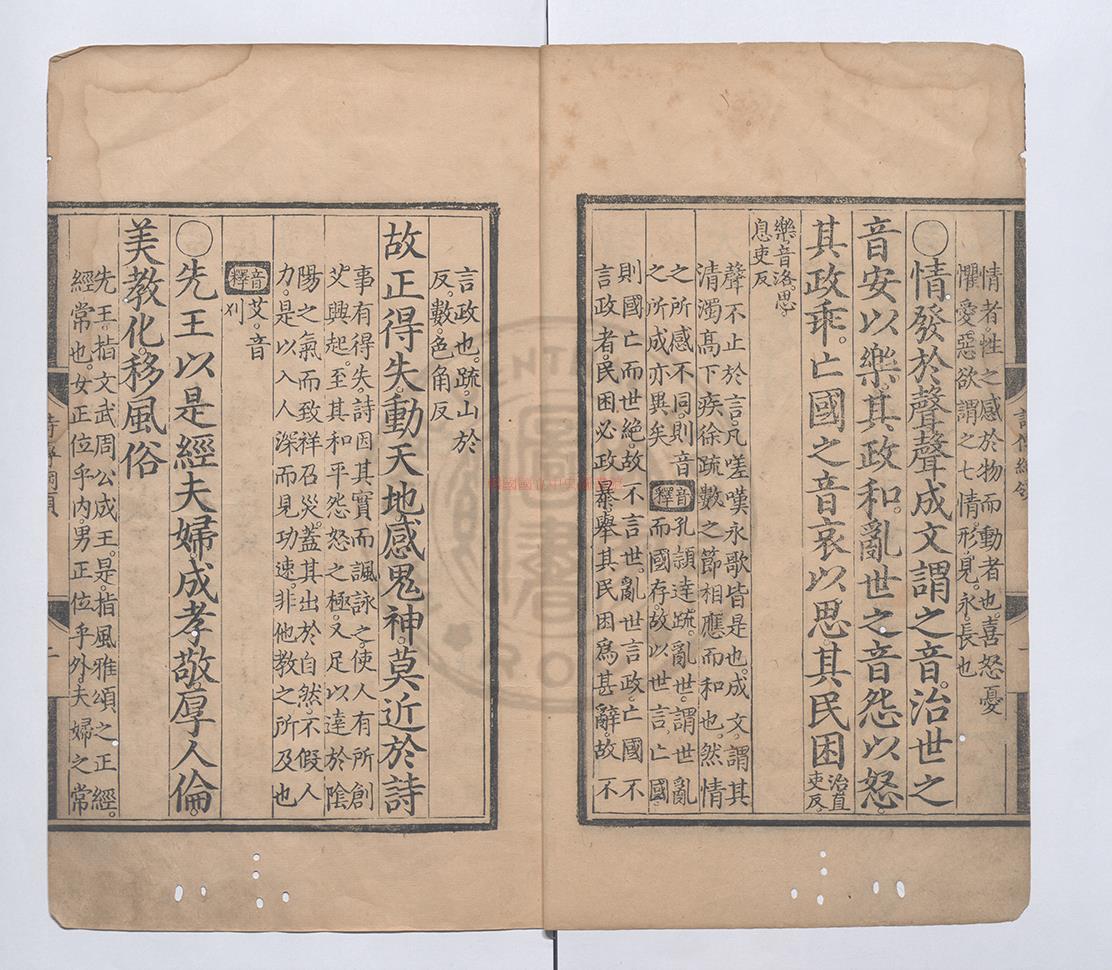 情者。性之感於物而動者也。喜怒憂
懼愛惡欲謂之七情。形。見。永。長也
○情發於聲聲成文謂之音。治世之
音安以樂。其政和。亂世之音怨以怒。
其政乖。亡國之音哀以思。其民困 治直吏反。
樂。音洛。思。息吏反
聲不止於言。凡嗟嘆永歌皆是也。成文。謂其
清濁高下疾徐疏數之節相應而和也。然情
之所感不同。則音
之所成亦異矣
音釋
孔頴達疏。亂世。謂世亂
而國存。故以世言。亡國
則國亡而世絶。故不言世。亂世言政亡國不
言政者。民困必政暴舉其民困爲甚辭。故不
言政也。疏。山於
反。數。色角反
故正得失。動天地感鬼神。莫近於詩
事有得失。詩因其實而諷詠之。使人有所創
艾興起。至其和平怨怒之極。又足以達於陰
陽之氣而致祥召災。蓋其出於自然。不假人
力。是以入人深而見功速非他教之所及也
音釋
艾。音
刈
○先王以是經夫婦成孝敬厚人倫。
美教化移風俗
先王。指文武周公成王。是。指風雅頌之正經。
經。常也。女正位乎内。男正位乎外。夫婦之常